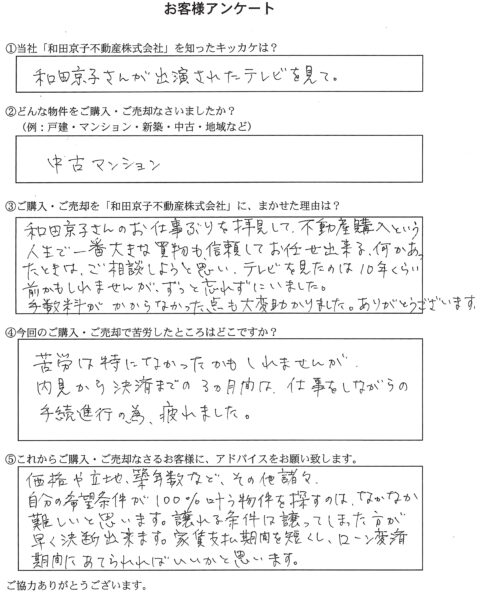 お客様アンケート
①当社「和田京子不動産株式会社」を知ったキッカケは？
和田京子さんが出演されたテレビを見て。
②どんな物件をご購入・ご売却なさいましたか？
（例：戸建・マンション・新築・中古・地域など）
中古マンション
③ご購入・ご売却を「和田京子不動産株式会社」に、まかせた理由は？
和田京子さんのお仕事ぶりを拝見して、不動産購入という
人生で一番大きな買物も信頼してお任せ出来る、何かあっ
たときは、ご相談しようと思い、テレビを見たのは10年くらい
前かもしれませんが、ずっと忘れずにいました。
手数料がかからなかった点も大変助かりました。ありがとうございます。
④今回のご購入・ご売却で苦労したところはどこですか？
苦労は特になかったかもしれませんが、
内見から決済までの3ヵ月間は、仕事をしながらの
手続進行の為、疲れました。
⑤これからご購入・ご売却なさるお客様に、アドバイスをお願い致します。
価格や立地、築年数など、その他諸々、
自分の希望条件が100%叶う物件を探すのは、なかなか
難しいと思います。譲れる条件は譲ってしまった方が
早く決断出来ます。家賃支払期間を短くし、ローン返済
期間にあてられればいいかと思います。
ご協力ありがとうございます。